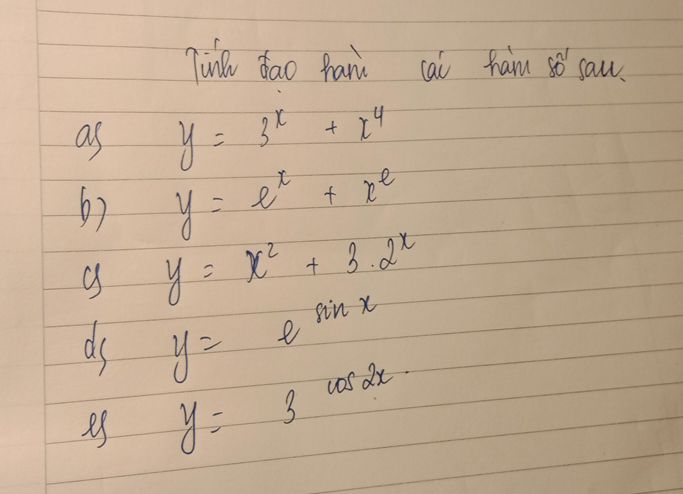 Tính đạo hàm các hàm số sau.
a) y = 3^x + x^4
b) y = e^x + x^e
c) y = x^2 + 3.2^x
d) y = e^{sin x}
e) y = 3^{cos 2x}.